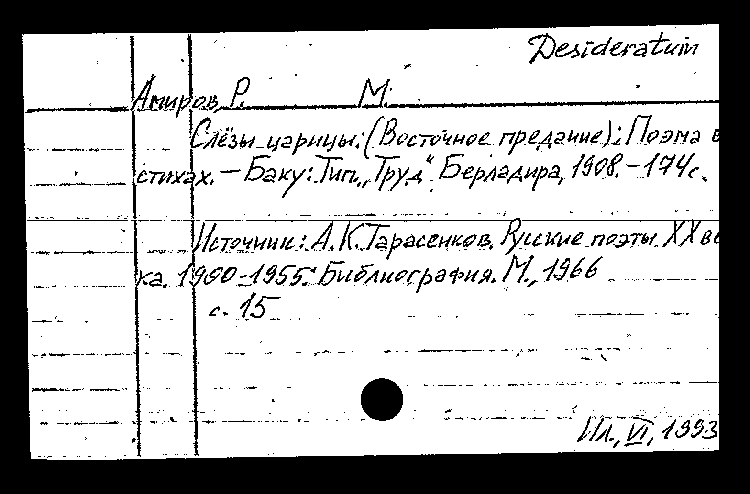 Desideratum
Амиров, Р. М.
Слёзы царицы: (Восточное предание): Поэма в
стихах. – Баку: Тип. „Труд“ Берладира, 1908. – 174 с.
Источник: А. К. Тарасенков. Русские поэты XX ве
ка. 1900–1955: Библиография. М., 1966
с. 15
Ил., VI, 1993